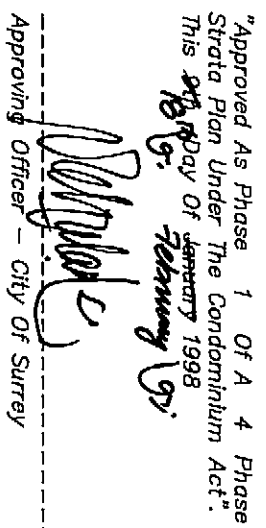 "Approved As Phase 1 Of A 4 Phase
Strata Plan Under The Condominium Act".
This 18th Day Of January February 1998
Approving Officer — City Of Surrey